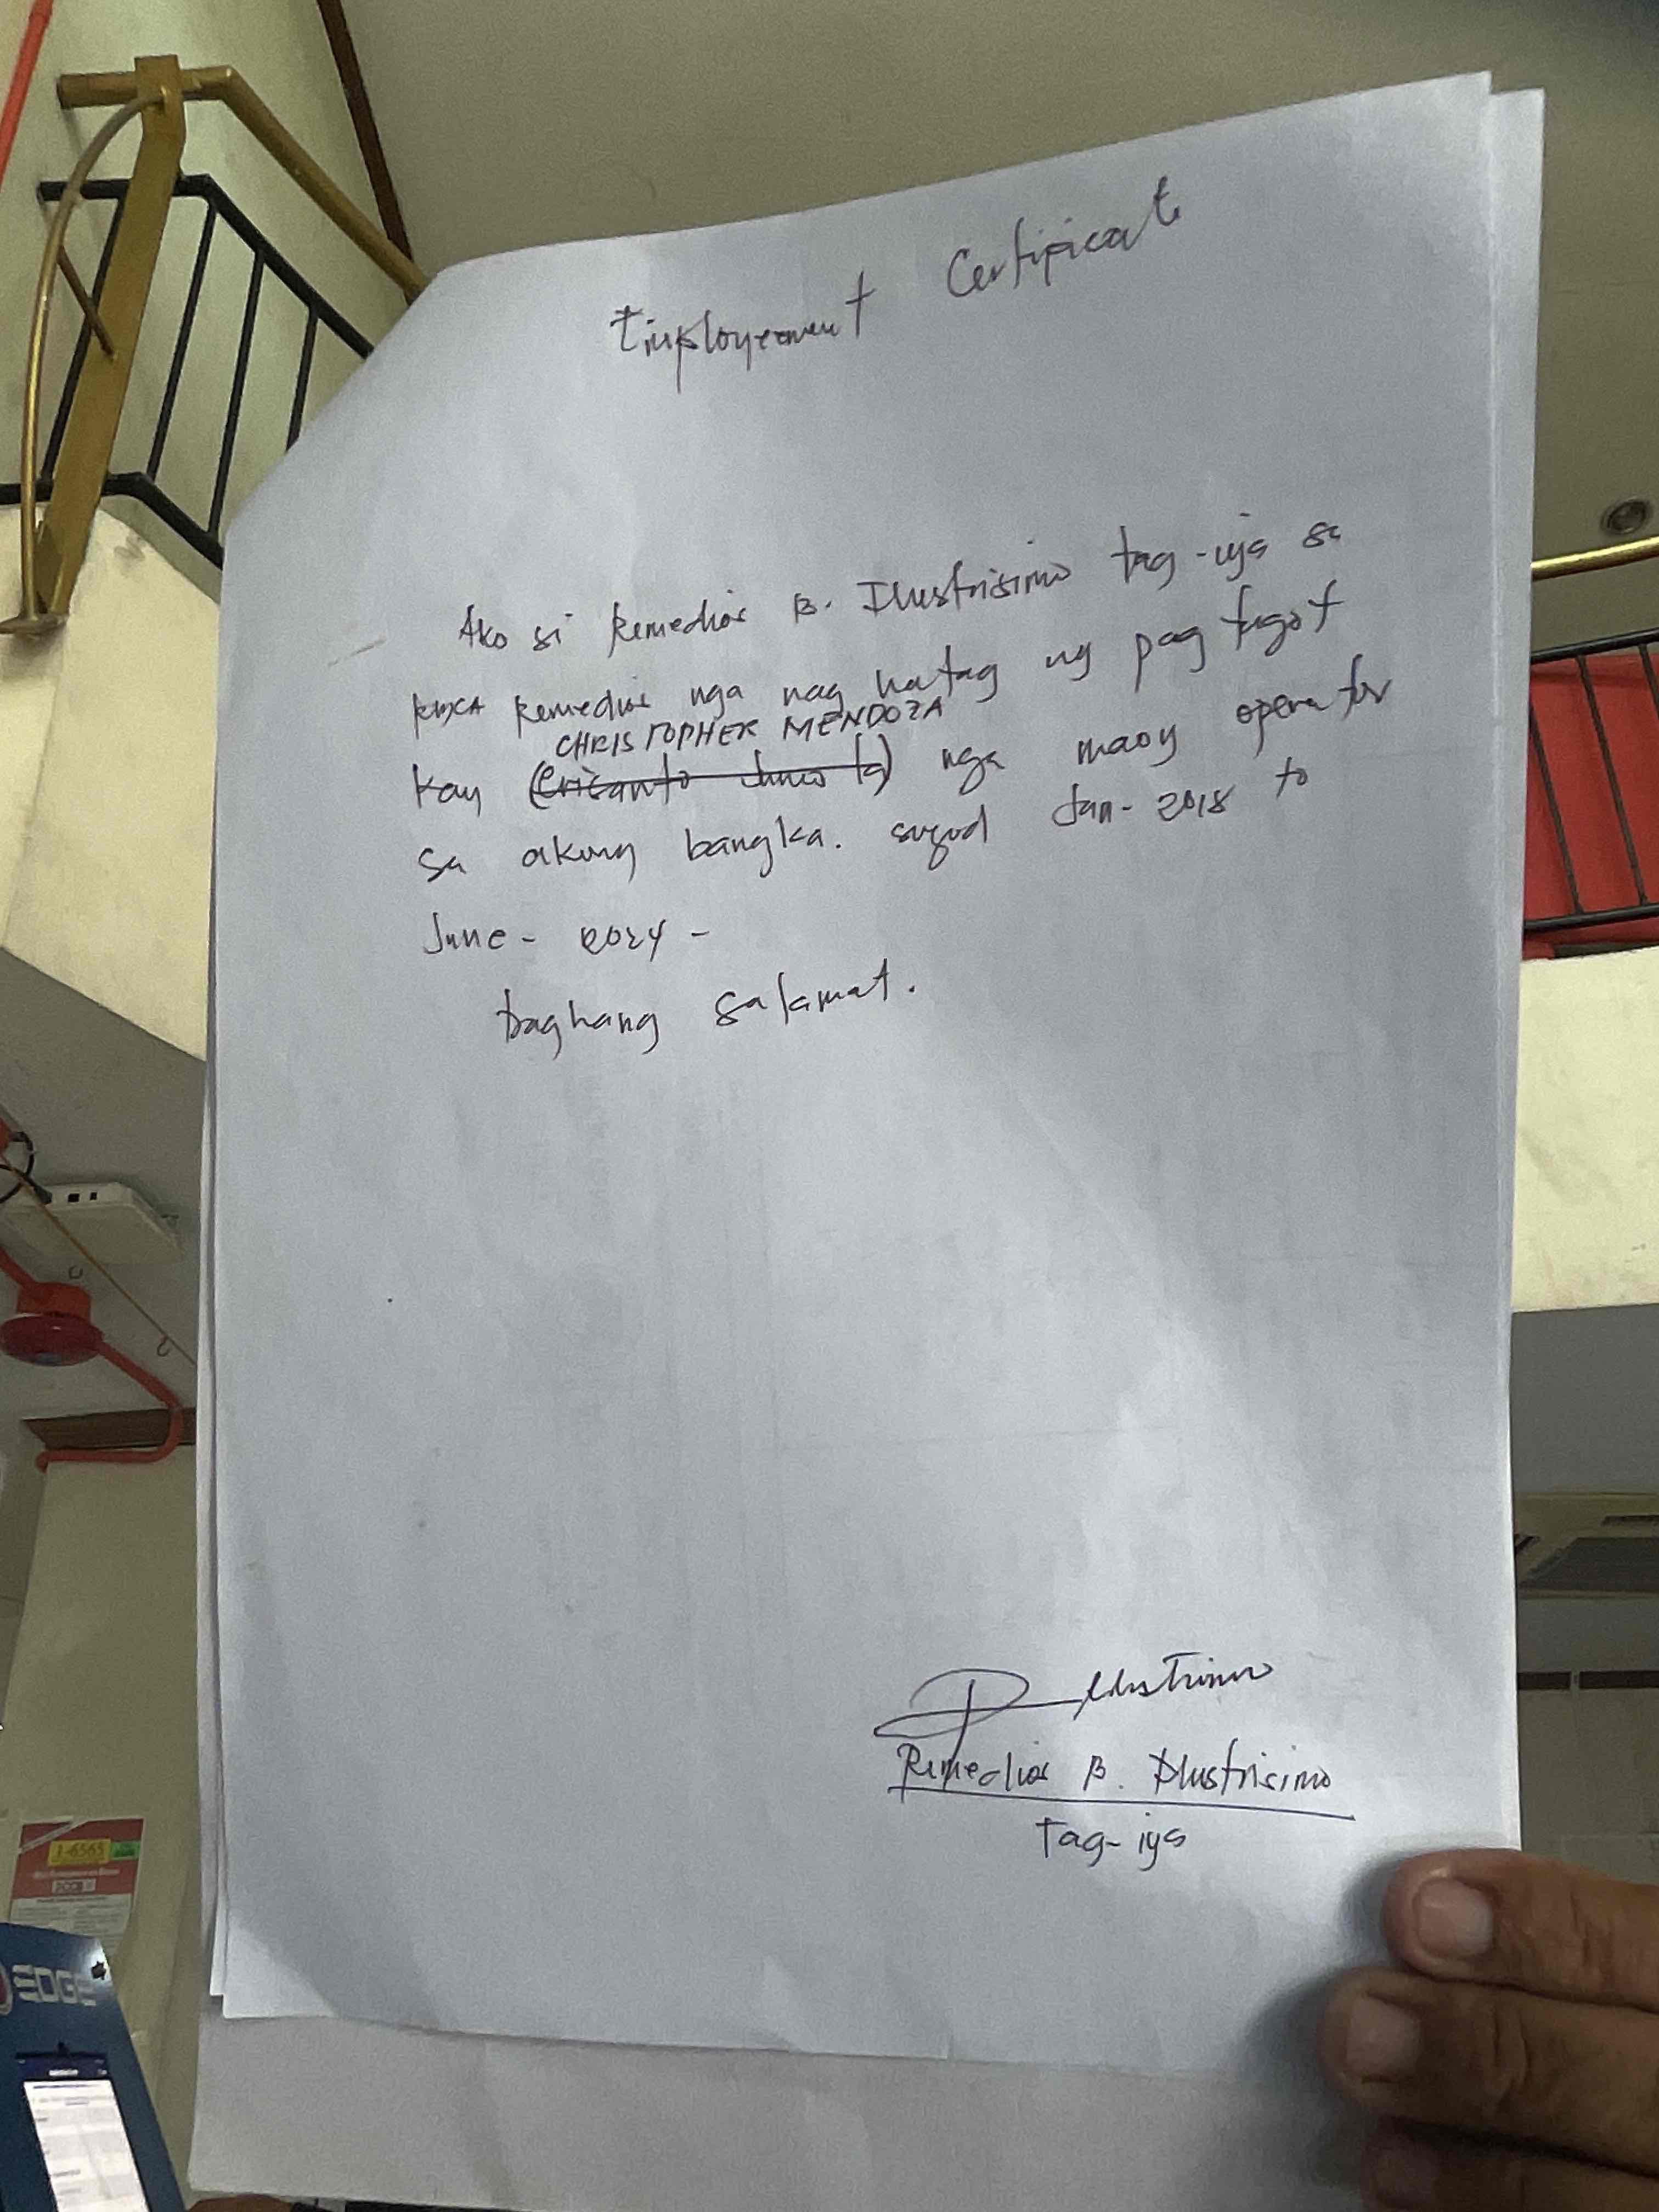 Employeement Certipicate
Ako si Remedios B. Ilustrisimo tag-iya sa
Remedios nga nag hatag ng pag tugot
CHRISTOPHER MENDOZA
kay nga maoy operator
sa akung bangka. sugod Jan- 2018 to
June - 2024 -
Daghang salamat.
Remedios B. Ilustrisimo
Tag-iya
1-6565
EDGE